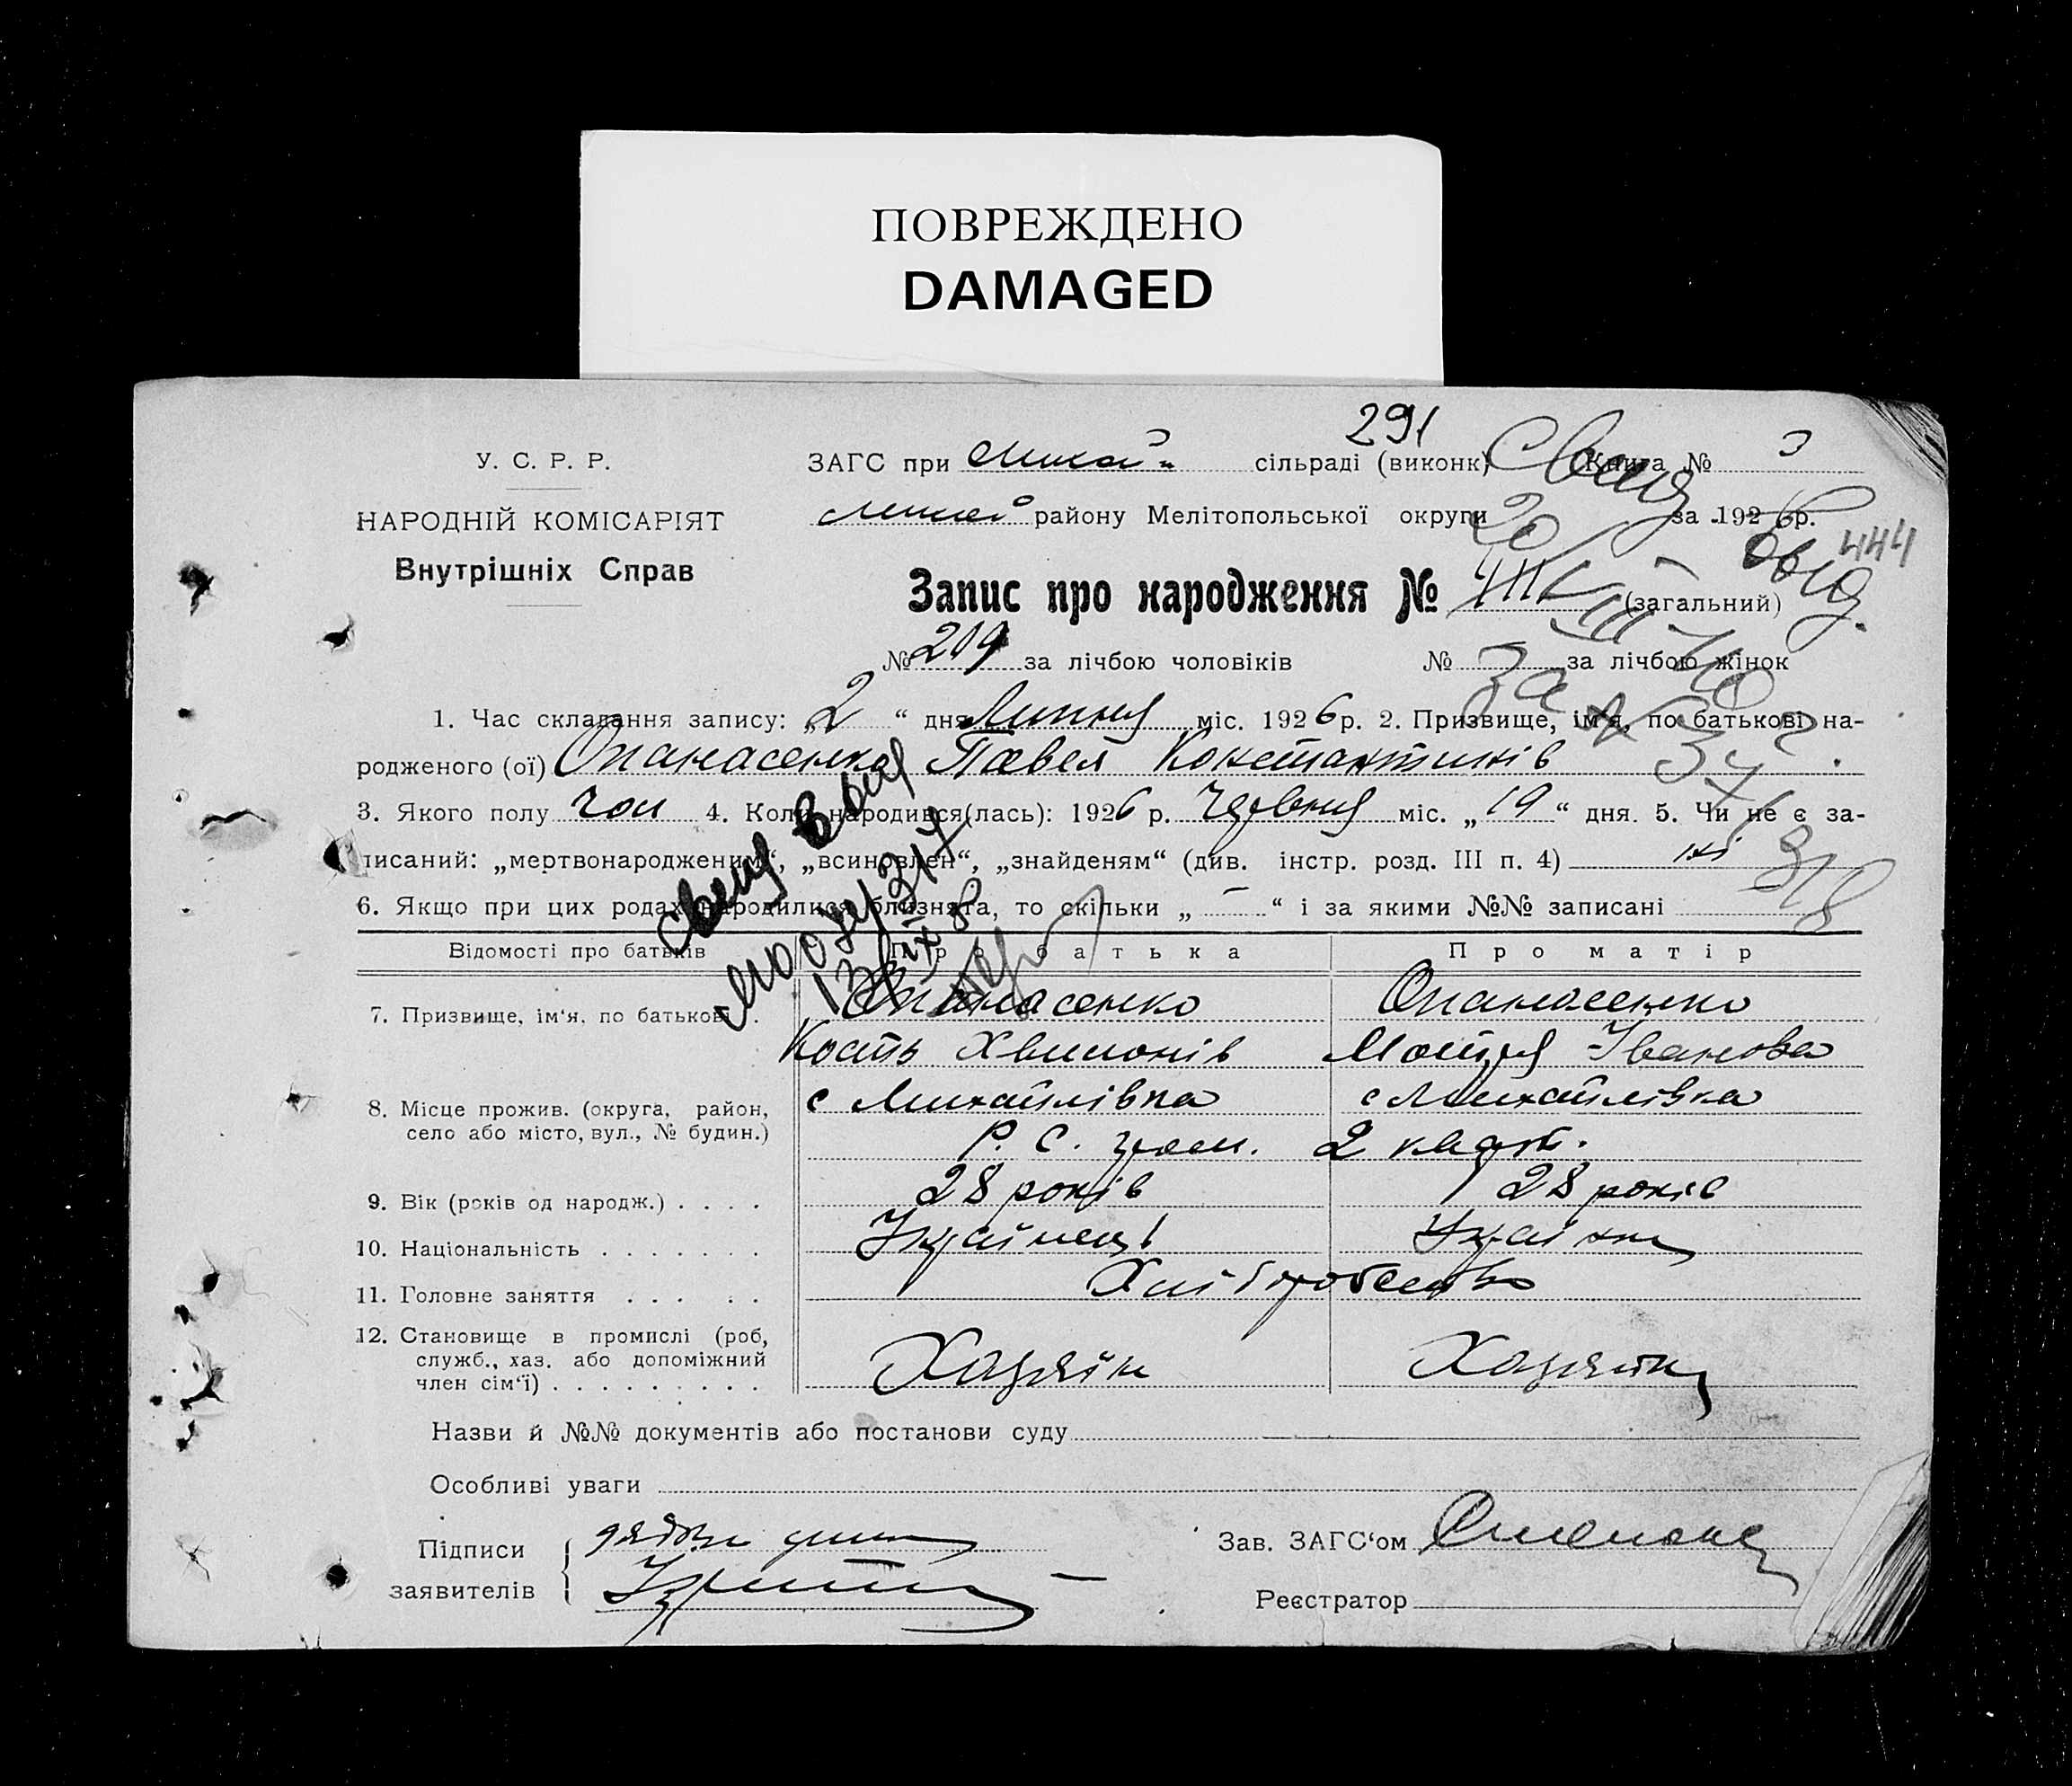 ПОВРЕЖДЕНО
DAMAGED
291
У. С. Р. Р.
ЗАГС при сільраді (виконк) Книга № 3
НАРОДНІЙ КОМІСАРІЯТ
району Мелітопольської округи за 1926 р.
Внутрішніх Справ
444
Запис про народження № (загальний)
№ 209 за лічбою чоловіків № за лічбою жінок
1. Час складання запису: „2“ дня Липня міс. 1926 р. 2. Призвище, ім'я, по батькові на-
родженого (ої) Опанасенко Павел Константинів
3. Якого полу чол 4. Коли народився(лась): 1926 р. Червня міс. „19“ дня. 5. Чи не є за-
писаний: „мертвонародженим“, „всиновлен“, „знайденям“ (див. інстр. розд. III п. 4) ні
6. Якщо при цих родах народилися близнята, то скільки „—“ і за якими №№ записані
318
Відомості про батьків Про батька Про матір
7. Призвище, ім'я, по батькові . Опанасенко Опанасенко
Кость Хвилонів Мотря Іванова
с Михайлівка с Михайлівка
8. Місце прожив. (округа, район,
село або місто, вул., № будин.)
Р. С. гром. 2 кварт.
9. Вік (років од народж.) . . . . 28 років 28 років
10. Національність . . . . . . . Українець Українка
11. Головне заняття . . . . . Хліборобство
12. Становище в промислі (роб,
служб., хаз. або допоміжний
член сім'ї) . . . . . . . . . Хазяїн Хазяйка
Назви й №№ документів або постанови суду
Особливі уваги
Підписи
заявителів
Зав. ЗАГС'ом
Реєстратор